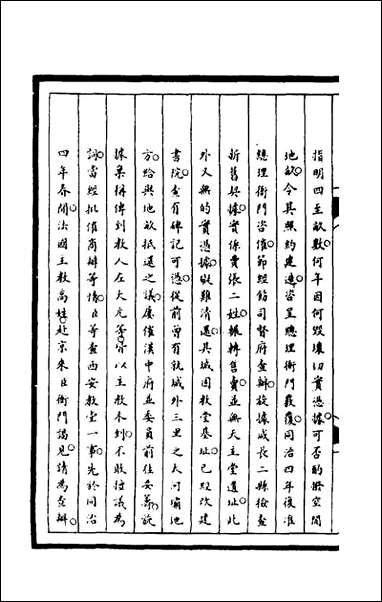 指明四至畝數何年因何毀壞切實憑據可否酌撥空閒
地畝令其照約建造咨呈總理衙門覈覆同治四年復准
總理衙門咨催節經飭司督府查辦旋據咸長二縣檢查
新舊契據實係賣張二姓輾轉售賣並無天主堂遺址此
外又無的實憑據礙難清還其城固教堂基址已改建
書院查有碑記可憑從前曾有就城外三里之大河壩地
方給與地畝抵還之議屢催漢中府並委員前往妥籌旋
據稟稱傳到教人左大元等皆以主教未到不敢擅議為
詞當經批催商辦等情臣等查西安教堂一事先於同治
四年春間法國主教高姓赴京來臣衙門謁見請為查辦